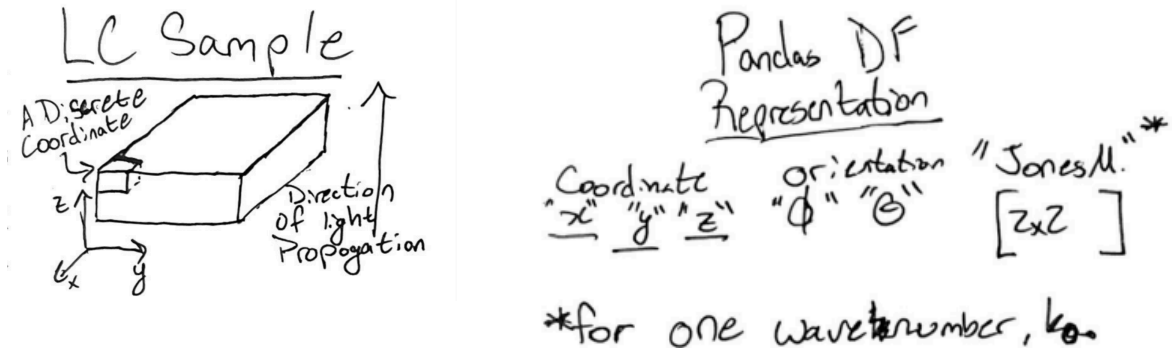 LC Sample
A Discrete
Coordinate
z
x
y
Direction
of light
Propogation
Pandas DF
Representation
Coordinate
"x" "y" "z"
orientation
"ϕ" "θ"
"Jones M."*
[2x2]
*for one wavenumber, k₀.